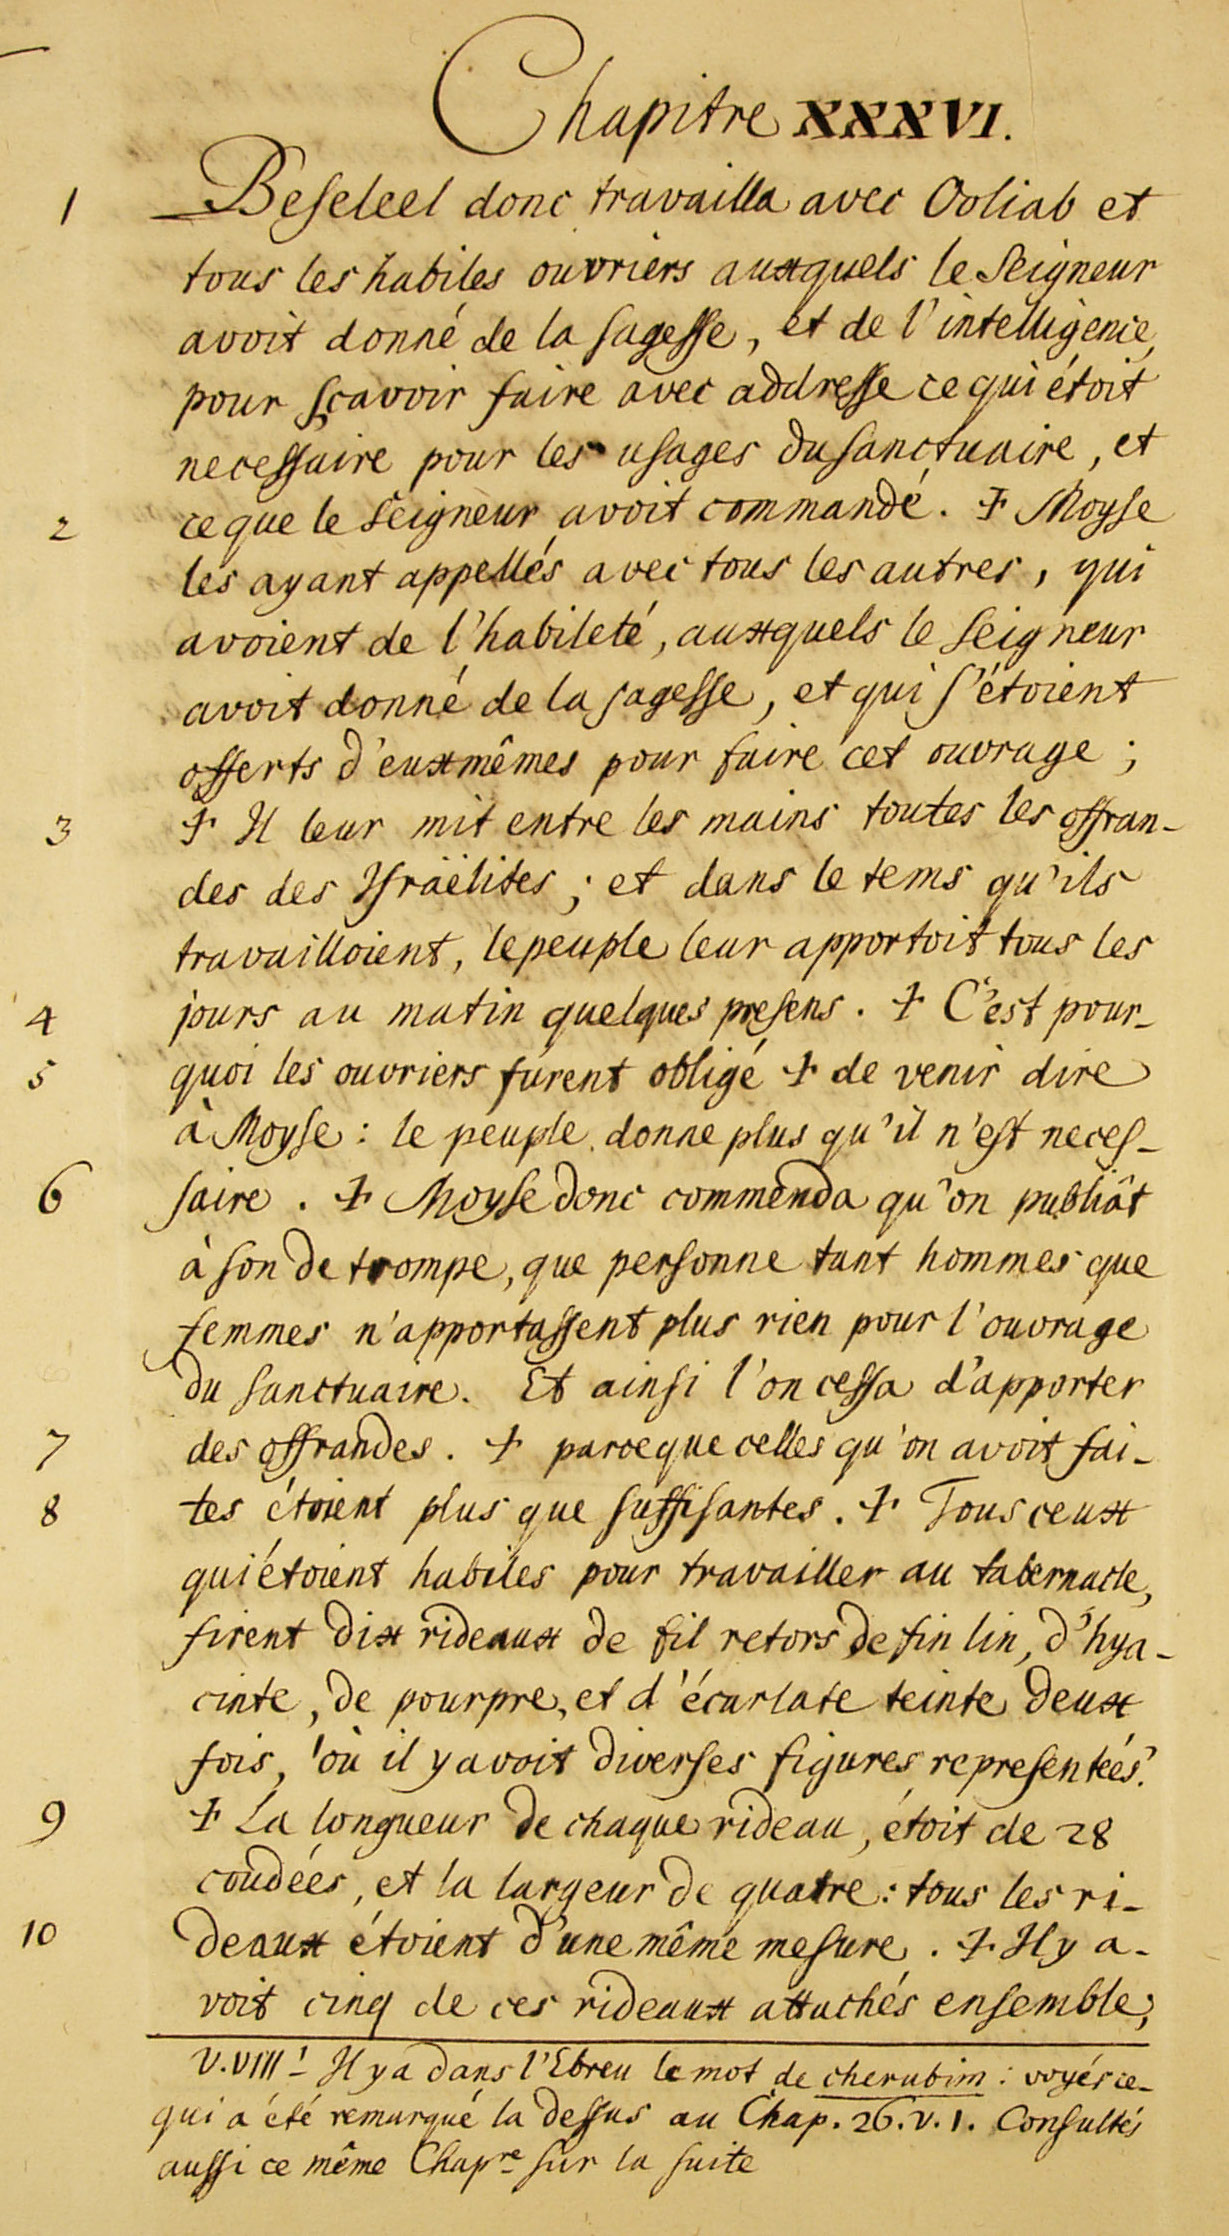 Chapitre XXXVI.
1 Beseleel donc travailla avec Ooliab et
tous les habiles ouvriers auxquels le Seigneur
avoit donné de la sagesse, et de l'intelligence,
pour sçavoir faire avec addresse ce qui étoit
necessaire pour les usages du sanctuaire, et
2 ce que le Seigneur avoit commandé. ☩ Moyse
les ayant appellés avec tous les autres, qui
avoient de l'habileté, auxquels le Seigneur
avoit donné de la sagesse, et qui s'étoient
offerts d'eux mêmes pour faire cet ouvrage ;
3 ☩ Il leur mit entre les mains toutes les offran-
des des Israëlites ; et dans le tems qu'ils
travailloient, le peuple leur apportoit tous les
4 jours au matin quelques presens. ☩ C'est pour-
5 quoi les ouvriers furent obligé ☩ de venir dire
à Moyse : le peuple donne plus qu'il n'est neces-
6 saire. ☩ Moyse donc commenda qu'on publiât
à son de trompe, que personne tant hommes que
femmes n'apportassent plus rien pour l'ouvrage
du sanctuaire. Et ainsi l'on cessa d'apporter
7 des offrandes. ☩ parce que celles qu'on avoit fai-
8 tes étoient plus que suffisantes. ☩ Tous ceux
qui étoient habiles pour travailler au tabernacle,
firent dix rideaux de fil retors de fin lin, d'hya-
cinte, de pourpre, et d'écarlate teinte deux
fois, 'où il y avoit diverses figures representées'.
9 ☩ La longueur de chaque rideau, étoit de 28
coudées, et la largeur de quatre : tous les ri-
10 deaux étoient d'une même mesure. ☩ Il y a-
voit cinq de ces rideaux attachés ensemble ;
V. VIII ' - Il y a dans l'Ebreu le mot de cherubim : voyés ce-
qui a été remarqué la dessus au Chap. 26. v. 1. Consultés
aussi ce même Chapre sur la suite